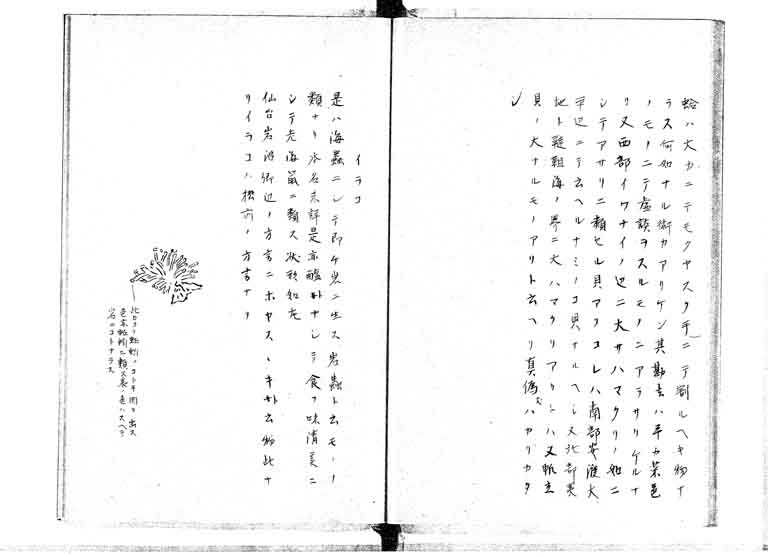 蛤ハ大カニテモクヤスク手ニテ割ルヘキ物ナ
ラス何如ナル術カアリケン其勘吉ハ平カ
ノモノニテ虚談ヲスルモノニアラサリケルナ
リ又西部イワナイノ辺ニ大サハマクリノ如ニ
シテアサリニ類セル貝アリコレハ南部安渡大
平辺ニテ云ヘルナミノコ貝ナルヘシ又北部
地ト 海ノ界ニ大ハマクリアリ 又帆立
貝ノ大ナルモノアリト云ヘリ真偽ハカリカタ
シ
イラコ
是ハ海蟲ニシテ即ケ岩ニ生ス岩蟲ト云モノノ
類ナリ水名未詳是亦醢 ナシテ食フ味清美ニ
シテ老海鼠ニ類ス状形如左
仙台岩沼郷辺ノ方言ニホヤスヽキ 云物此ナ
リイラコハ松前ノ方言ナリ
此口ヨリ ノコトキ肉ヲ出ス
色亦 ニ類ス表ノ色ハスヘテ
岩ニコトナラス